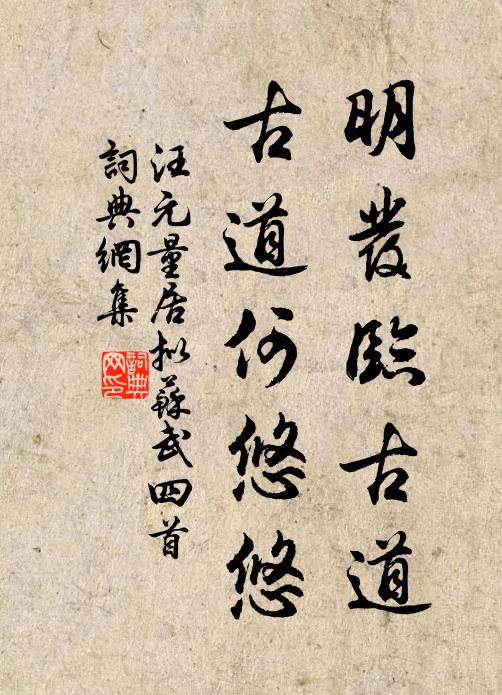 明發臨古道
古道何悠悠
汪元量居拟蘇武四首
詞典網集
詞典
网印